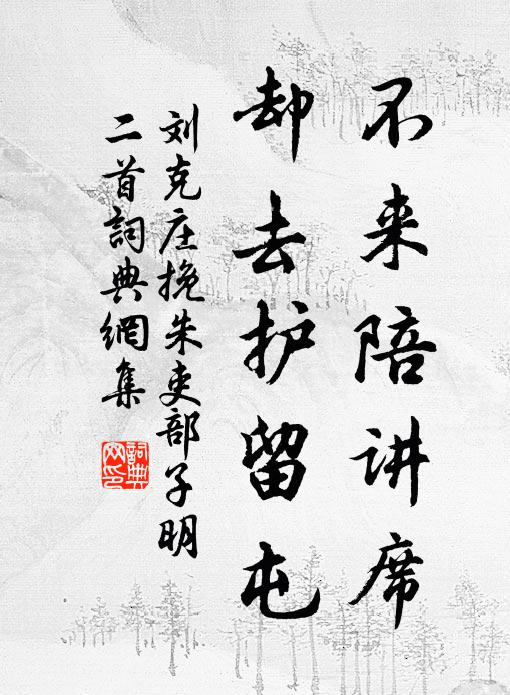 不来陪讲席
却去护留屯
刘克庄挽朱吏部子明
二首詞典網集
詞典
网印